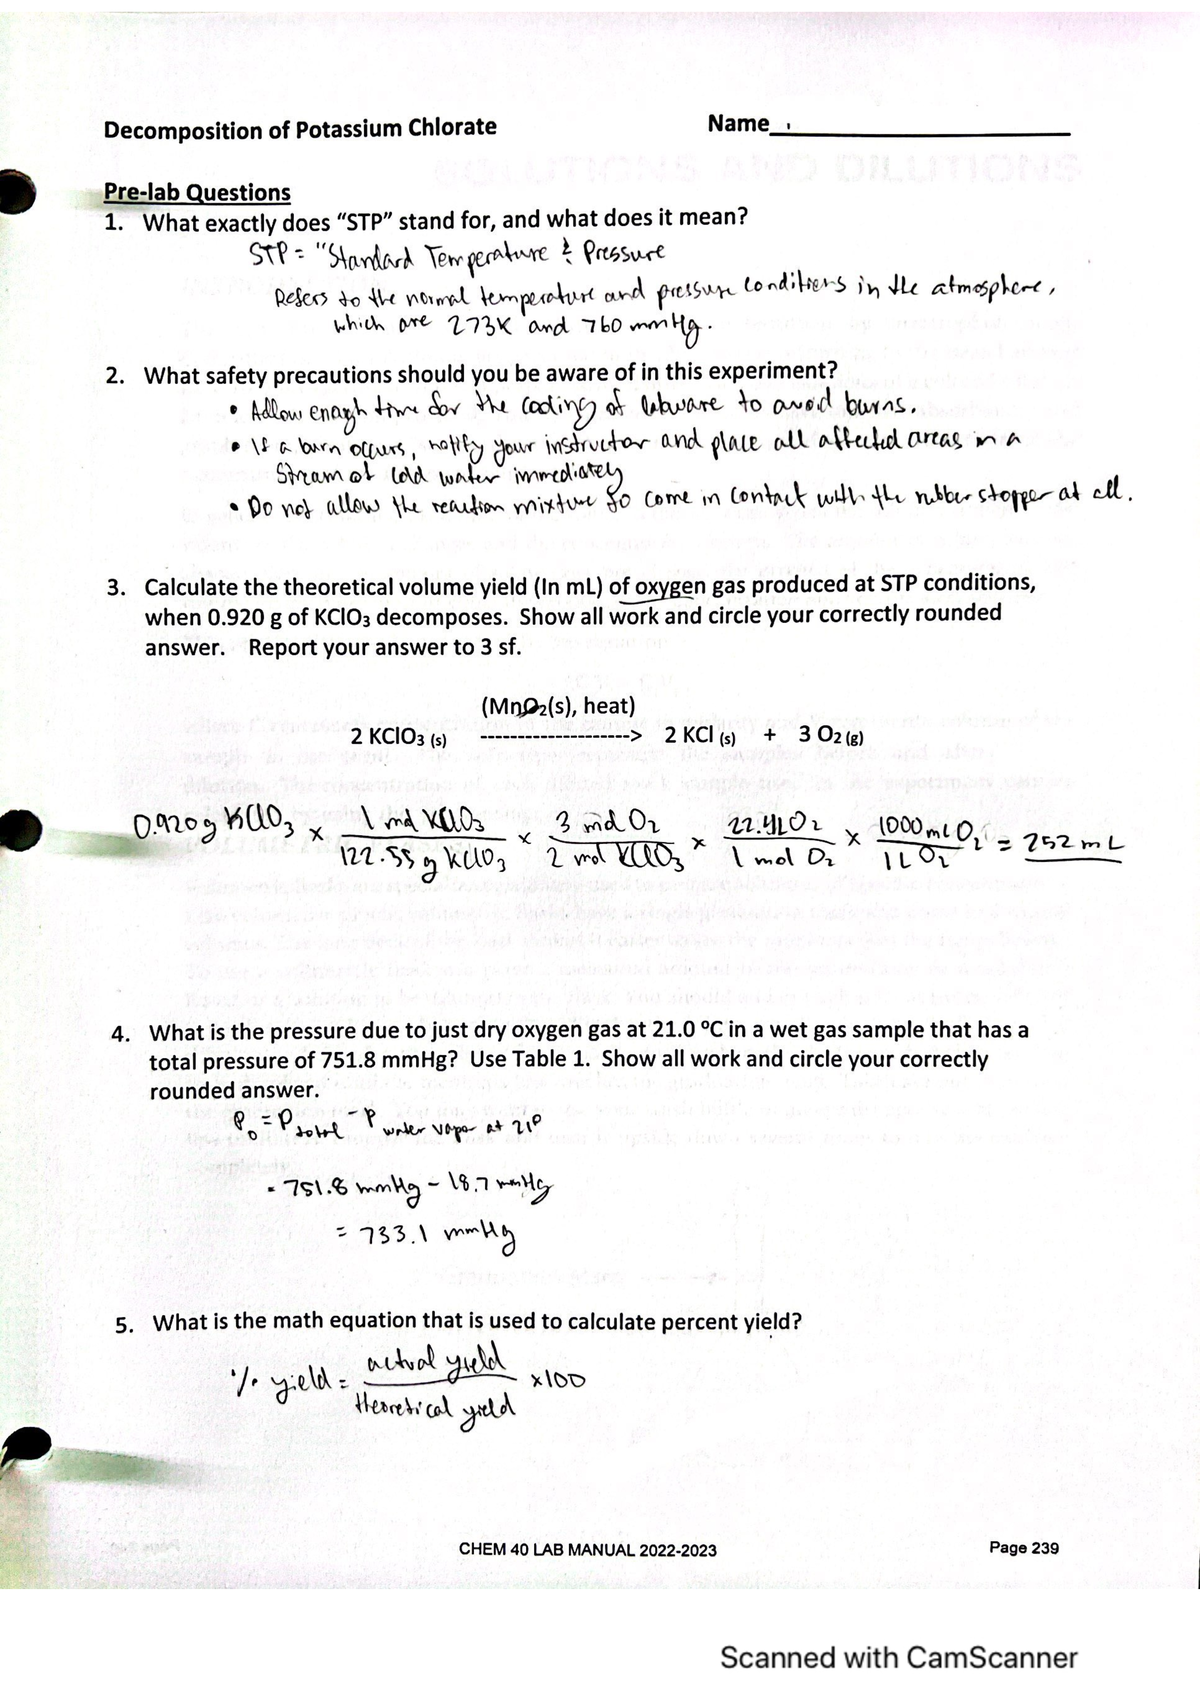 Decomposition of Potassium Chlorate Name
Pre-lab Questions
1. What exactly does “STP” stand for, and what does it mean?
STP = "Standard Temperature & Pressure
Refers to the normal temperature and pressure conditions in the atmosphere,
which are 273K and 760 mmHg.
2. What safety precautions should you be aware of in this experiment?
• Allow enough time for the cooling of labware to avoid burns.
• If a burn occurs, notify your instructor and place all affected areas in a
stream of cold water immediately
• Do not allow the reaction mixture to come in contact with the rubber stopper at all.
3. Calculate the theoretical volume yield (In mL) of oxygen gas produced at STP conditions,
when 0.920 g of KClO3 decomposes. Show all work and circle your correctly rounded
answer. Report your answer to 3 sf.
(MnO2(s), heat)
2 KClO3 (s) -------------------> 2 KCl (s) + 3 O2 (g)
0.920g KClO3 × 1 mol KClO3 / 122.55 g KClO3 × 3 mol O2 / 2 mol KClO3 × 22.4L O2 / 1 mol O2 × 1000 mL O2 / 1 L O2 = 252 mL
4. What is the pressure due to just dry oxygen gas at 21.0 ºC in a wet gas sample that has a
total pressure of 751.8 mmHg? Use Table 1. Show all work and circle your correctly
rounded answer.
P0 = Ptotal - P water vapor at 21°
= 751.8 mmHg - 18.7 mmHg
= 733.1 mmHg
5. What is the math equation that is used to calculate percent yield?
% yield = actual yield / theoretical yield ×100
CHEM 40 LAB MANUAL 2022-2023 Page 239
Scanned with CamScanner